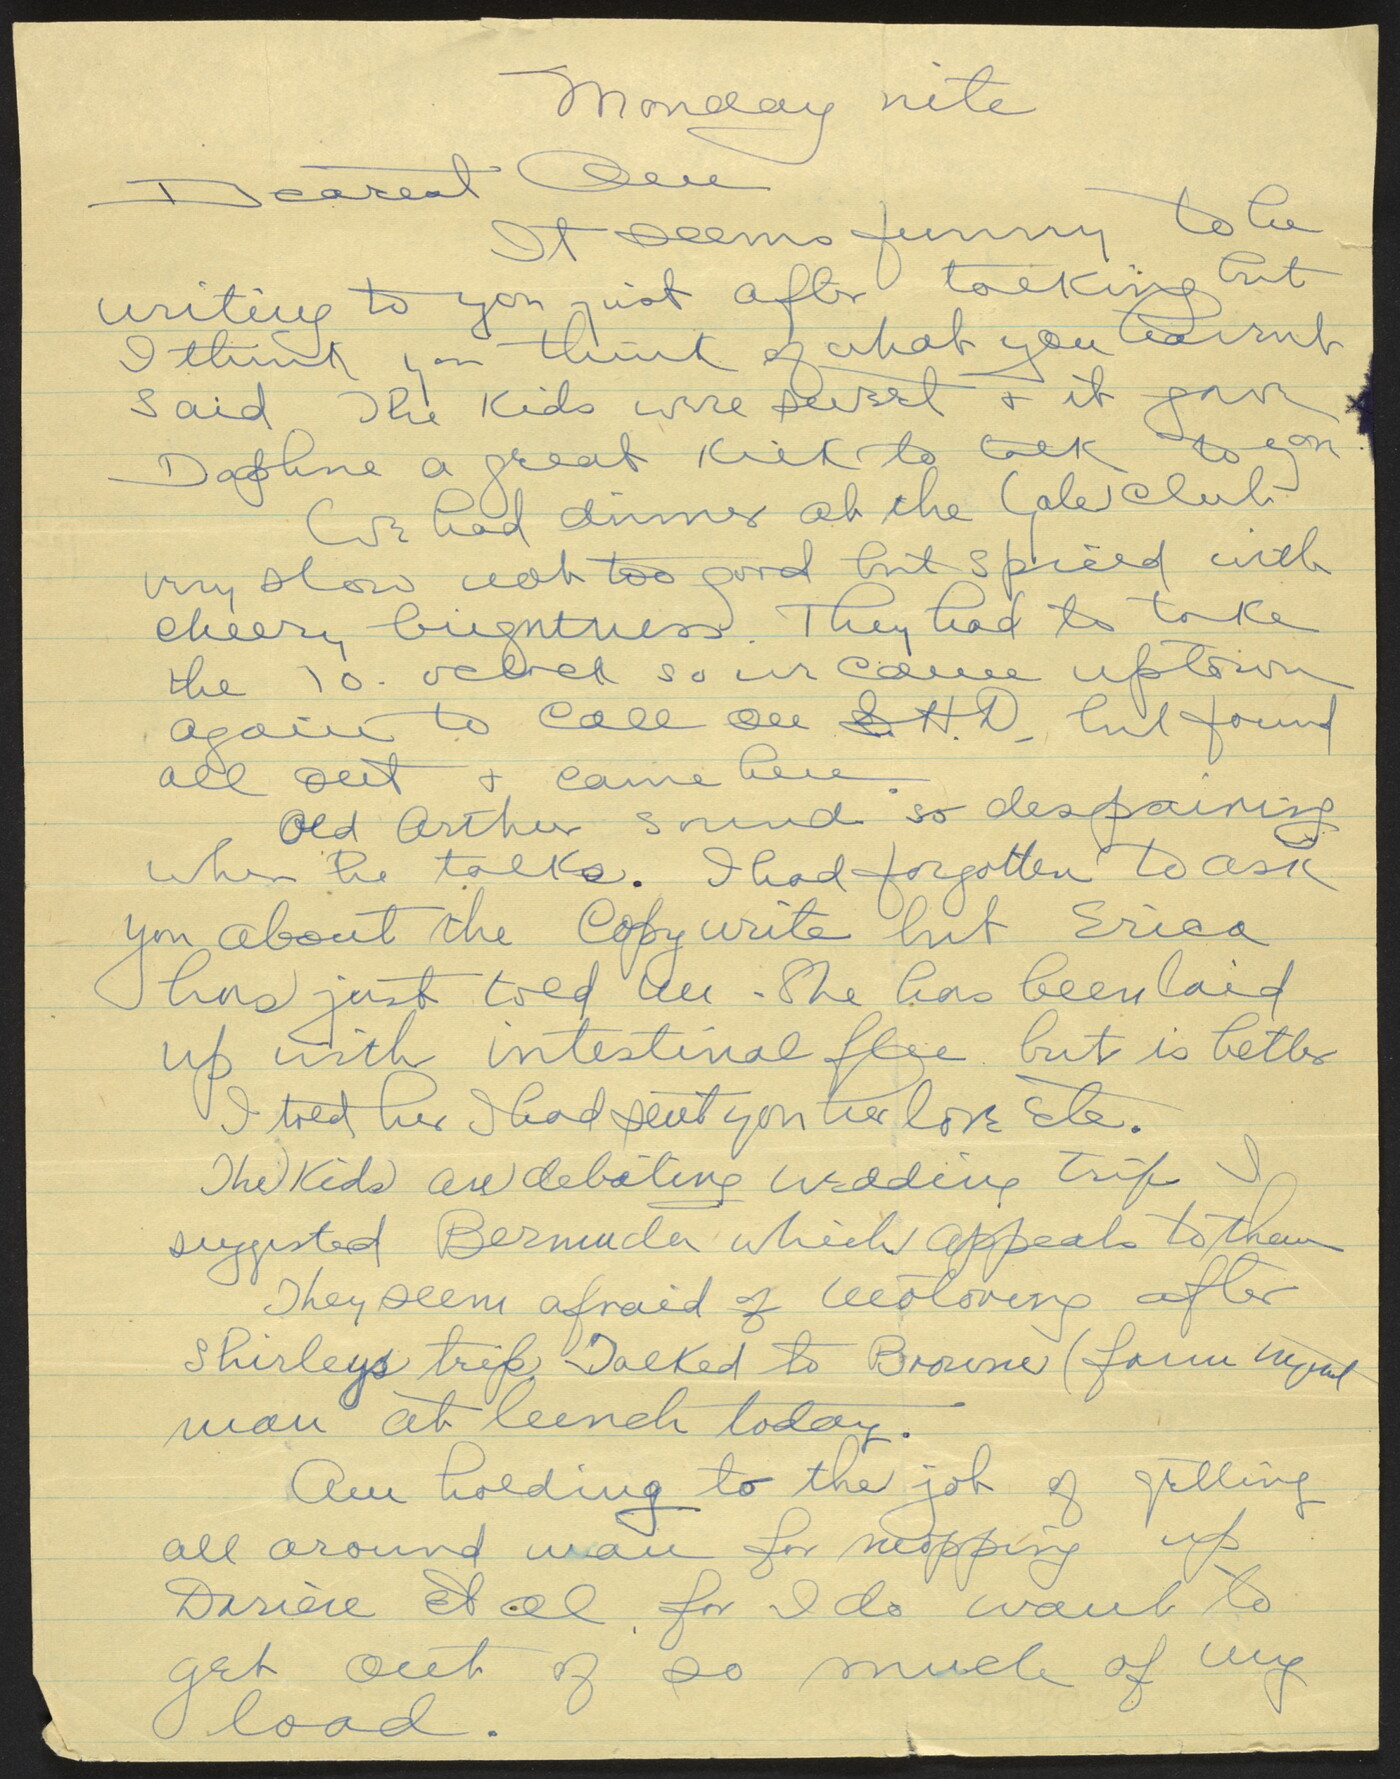 Monday nite
Dearest
It seems funny to be
writing to you just after talking but
I think you think of what you havent
said The kids were sweet & it gave
Daphne a great kick to talk to you
We had dinner at the Yale Club
very slow not too good but spiced with
cheery brightness. They had to take
the 10. oclock so we came uptown
again to call on S.H.D. but found
all out & came here
Old Arthur sounds so despairing
when he talks. I had forgotten to ask
you about the Copywrite but Erica
has just told me. She has been laid
up with intestinal flue but is better
I told her I had sent you her love Etc.
The Kids are debating wedding trip I
suggested Bermuda which appeals to them
They seem afraid of motoring after
Shirleys trip. Talked to Browne (farm mgmt
man at lunch today.
Am holding to the job of getting
all around man for mopping up
Dariere et al for I do want to
get out of so much of my
load.